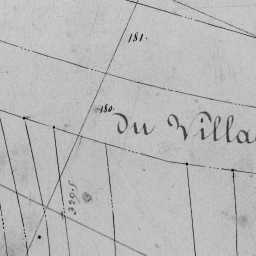 181.
180.
Du Villa